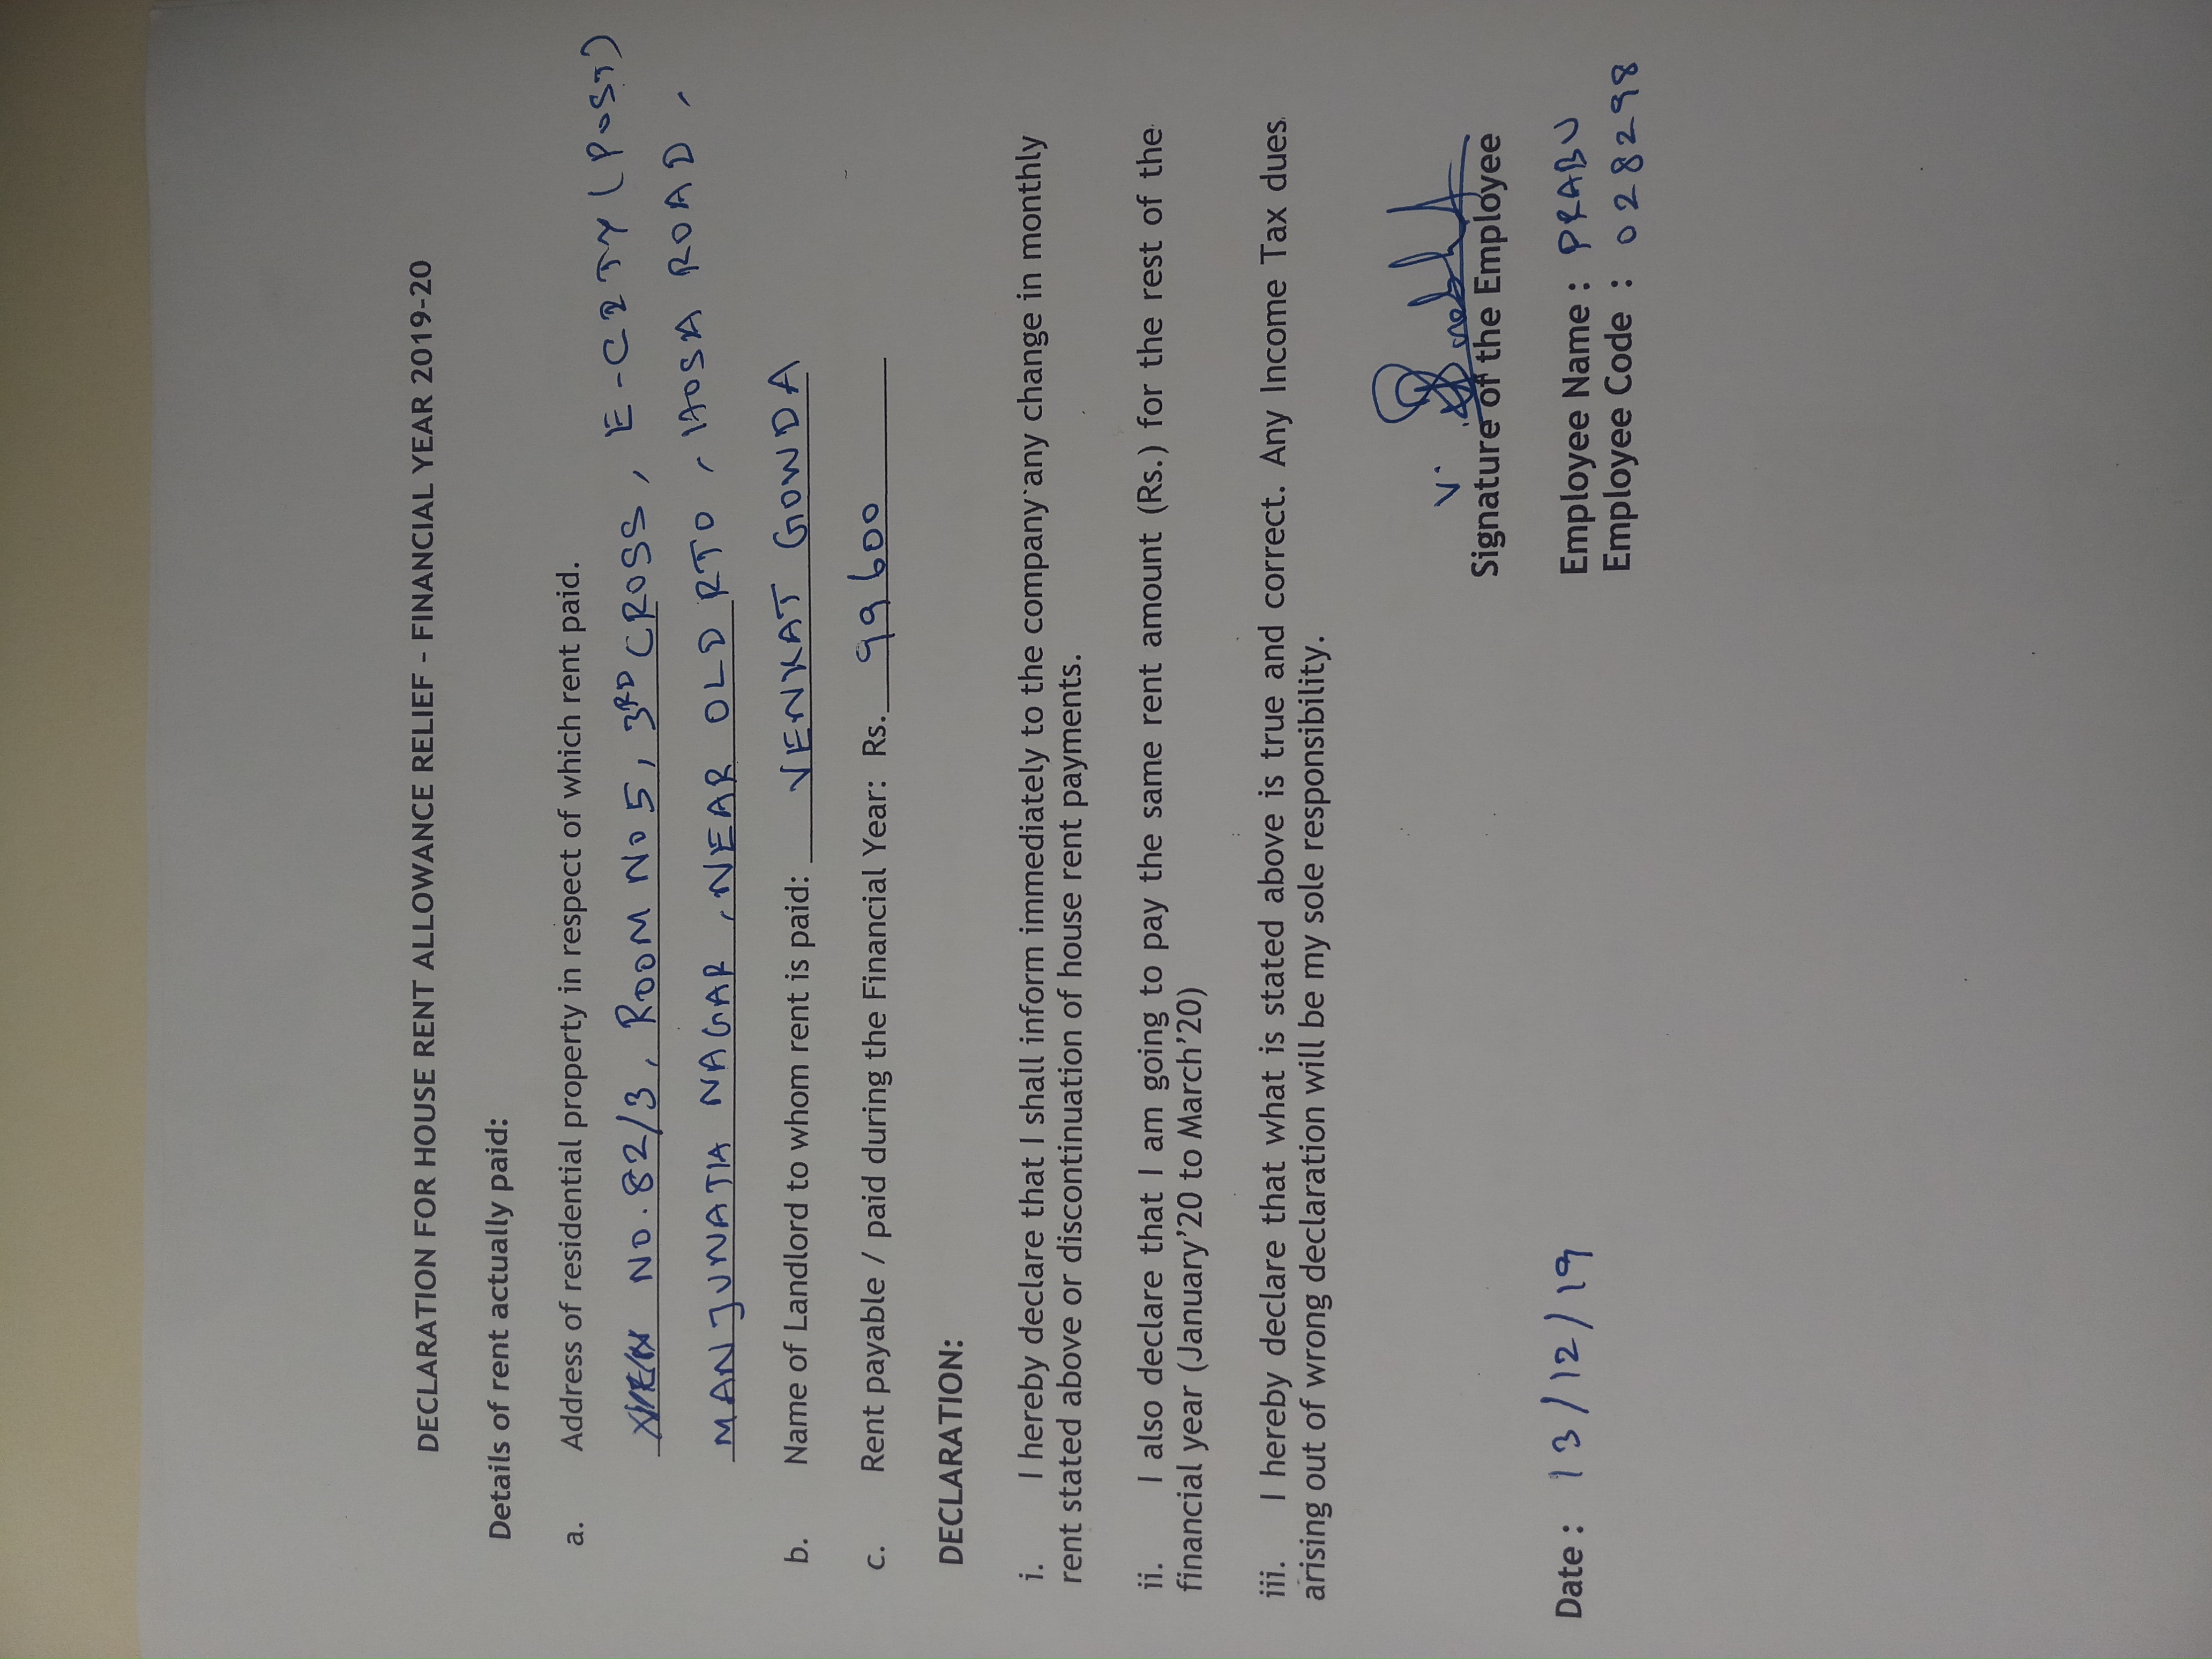 DECLARATION FOR HOUSE RENT ALLOWANCE RELIEF - FINANCIAL YEAR 2019-20
Details of rent actually paid:
a. Address of residential property in respect of which rent paid.
NO. 82/3, ROOM NO 5, 3RD CROSS, E-CITY (POST)
MANJUNATHA NAGAR, NEAR OLD RTO, HOSA ROAD,
b. Name of Landlord to whom rent is paid: VENKAT GOWDA
c. Rent payable / paid during the Financial Year: Rs. 99600
DECLARATION:
i. I hereby declare that I shall inform immediately to the company any change in monthly
rent stated above or discontinuation of house rent payments.
ii. I also declare that I am going to pay the same rent amount (Rs.) for the rest of the
financial year (January'20 to March'20)
iii. I hereby declare that what is stated above is true and correct. Any Income Tax dues
arising out of wrong declaration will be my sole responsibility.
V.
Signature of the Employee
Date : 13/12/19
Employee Name : PRABU
Employee Code : 028298